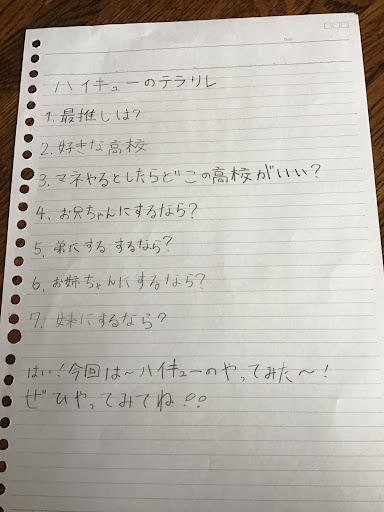 ハイキューのテラリレ
1. 最推しは?
2. 好きな高校
3. マネやるとしたらどこの高校がいい?
4. お兄ちゃんにするなら?
5. 弟にする するなら?
6. お姉ちゃんにするなら?
7. 妹にするなら?
はい!今回は〜ハイキューのやってみた〜!
ぜひやってみてね!!